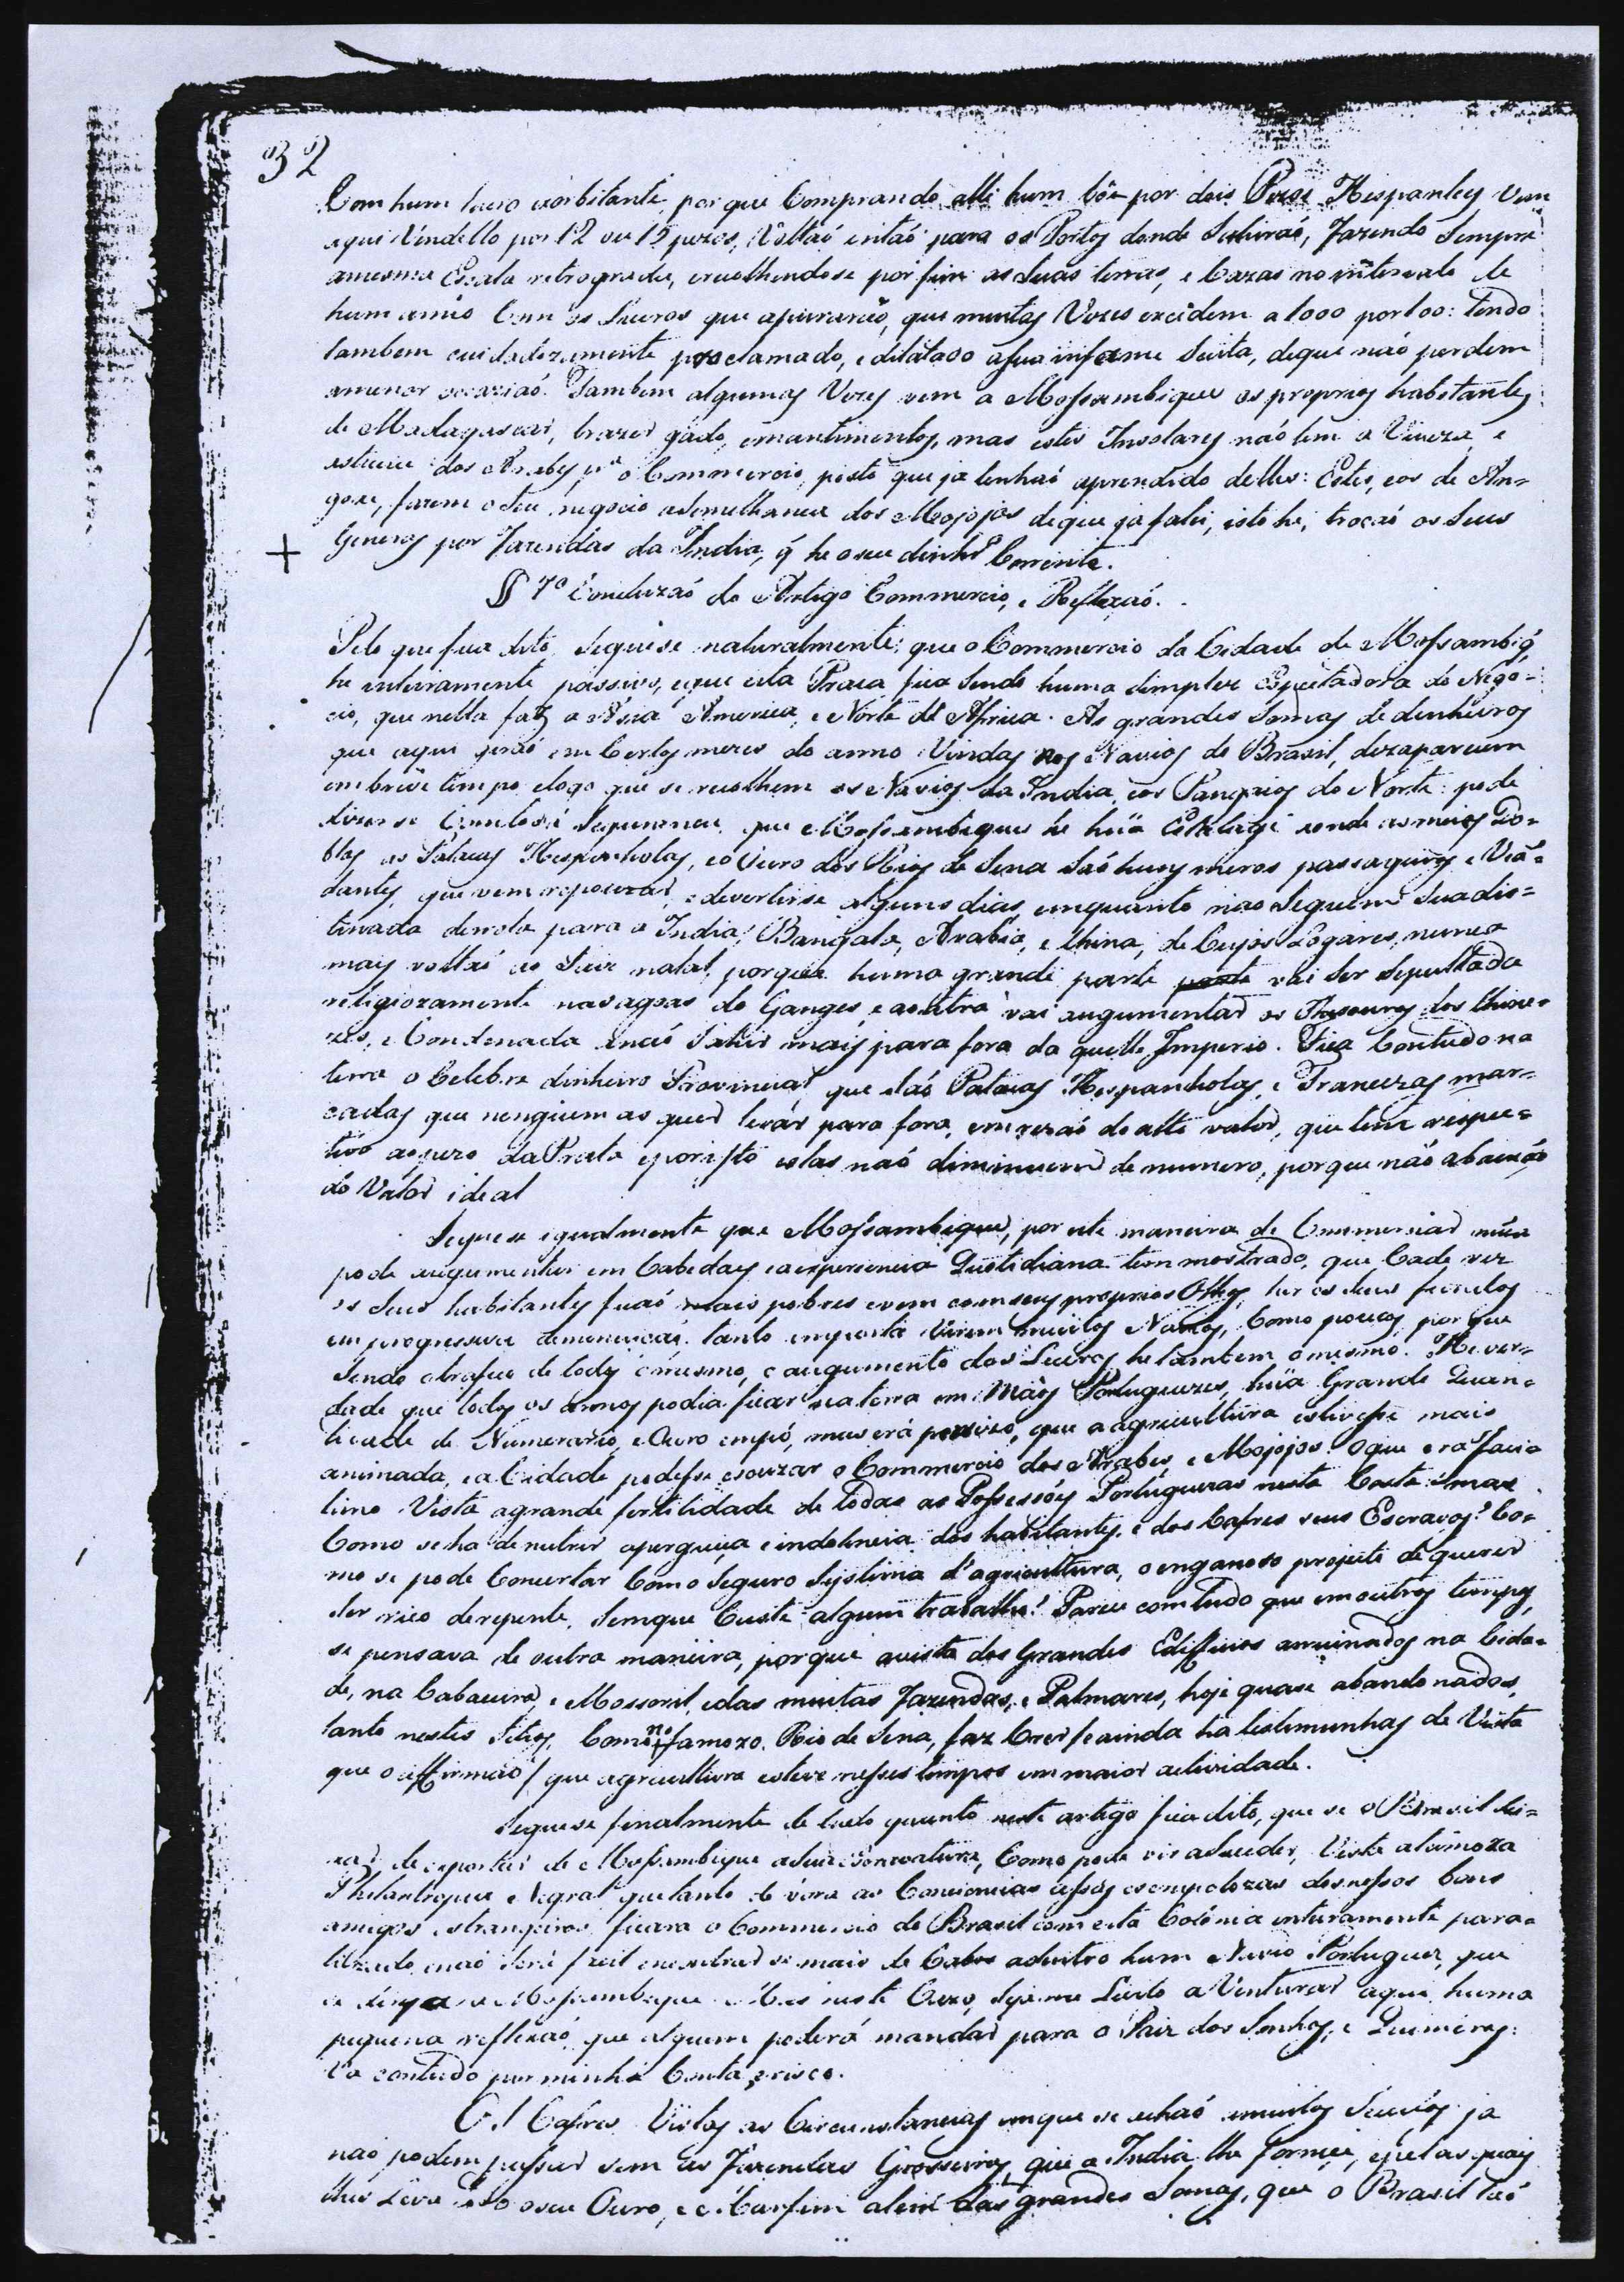 32
Com hum lucro exorbitante, porque Comprando alli hum bôi por dois Pezos Hespanhes Vem
aqui Vendello por 12 ou 15 pezos, Voltaó entáó para os Portos donde Sahiraó, fazendo Sempre
amesma Escala retrograda, erecolhendose por fim as Suas terras, e Cazas no intervalo de
hum anno Com os Lucros que apuraraó, que muntas Vezes excedem a 1000 por 100: tendo
tambem cuidadozamente proclamado, edilatado asua infame Seita, deque naó perdem
amenor occaziaó. Tambem algumas Vezes vem a Mossambique os proprios habitantes
de Madagascar, trazer gado, emantimentos, mas estes Insolares naó tem a Viveza, e
astucia dos Arabes pª o Commercio, posto que ja tenhaó aprendido delles: Estes, eos de An=
goxe, fazem oSeu negocio aSemelhança dos Mojojos deque ja falei, isto he, trocaó os Seus
+ Generos por Fazendas da India, q̃ he oseu dinhrº Corrente.
§ 7º Concluzaó do Artigo Commercio, e Reflexaó.
Pelo que fica dito, Seguese naturalmente: que o Commercio da Cidade de Mossambiq̃
he inteiramente passivo, eque esta Praça fica Sendo huma Simples Espectadora do Nego=
cio, que nella faz a Asia America, e Norte de Africa. As grandes Somas de dinheiros
que aqui giraó em Certos mezes do anno Vindas nos Navios do Brasil, dezaparecem
em breve tempo elogo que se recolhem os Navios da India, eos Pangaios do Norte: pode
dizerse Com toda Segurança que Mossambique he hũa Estalage aonde as meias Do=
blas as Patacas Hespanholas, eo Ouro dos Rios de Sena Saó huns meros passageiros e Via=
dantes, que vem repouzar, e devertirse alguns dias, emquanto naó Seguem Suades=
tinada derrota para a India, Bangala, Arabia, e China, de Cujos Logares, nunca
mais voltaó ao Paiz natal, porque huma grande parte vai Ser Sepultada
religiozamente nas agoas do Ganges, e a outra vai augumentar os Thesouros dos Chine=
zes, e Condenada anaó Sahir mais para fora da quelle Imperio. Fica Contudo na
terra o Celebre dinheiro Provincial, que Saó Patacas Hespanholas, e Francezas mar=
cadas que nenguem as quer levar para fora, em rezaó do alto valor, que tem respec=
tivo ao pezo da Prata eporisto estas naó diminuem de numero, porque não abaixaó
do Valor ideal
Seguese egualmente que Mossambique, por este maneira de Commerciar nũca
pode augumentar em Cabedaes, eaexperiencia Quotidiana tem mostrado, que Cada vez
os Seus habitantes ficaó mais pobres evem comseus proprios Olhos, hir os Seus fundos
em progressiva demenuiçaó. tanto emporta virem muitos Navios, Como poucos, porque
Sendo otrafico de todos omesmo, o augumento dos Lucros he tambem o mesmo. He ver=
dade que todos os annos podia ficar na terra em Mãos Portuguezas, hũa Grande Quan=
tidade de Numerario, e Ouro empó, mas erá precizo, que a agricultura estivesse mais
animada, ea Cidade podesse escuzar o Commercio dos Arabes, e Mojojos. O que era facil=
limo Vista agrande fertilidade de todas as Possessões Portuguezas nesta Costa: mas
Como seha denutrir apreguiça e indolencia dos habitantes, e dos Cafres seus Escravos? Co=
mo se pode Concertar Como Seguro Systema d'agricultura, o enganoso projecto de querer
Ser rico derepente, Semque Custe algum trabalho? Parece comtudo que em outros tempos,
se pensava de outra maneira, porque avista dos Grandes Edificios arruinados na Cida=
de, na Cabaceira, e Mossoril, edas muitas Fazendas, e Palmares, hoje quase abandonados,
tanto nestes Sitios, Como no famozo Rio de Sena, faz Crer [se ainda ha testimunhas de Vista
que o affirmaó] que agricultura esteve nesses tempos em maior actividade.
Seguese finalmente de tudo quanto neste artigo fica dito, que se o Brasil dei=
xar de exportar de Mossambique aSua Escravatura, Como pode vir aSuceder, Vista afamoza
Philantropia Negral que tanto devora as Consciencias dessas escrupolozas dosnossos bons
amigos estrangeiros, ficara o Commercio do Brasil com esta Colónia enteramente para=
lizado, enaó Será facil encontrar se mais de Cabos adentro hum Navio Portuguez, que
se dirija a Mossambique. Mas neste Cazo, Sejame Licito aVenturar aqui huma
pequena reflexaó, que alguem poderá mandar para o Paiz dos Sonhos, e Quimeras:
Va contudo por minha Conta, erisco.
Os Cafres Vistas as Circunstancias emque se achaó amuitos Seculos, ja
naó podem passar sem as Fazendas Grosseiras, que a India lhe fornece, epelas quais
lhes Leva todo oseu Ouro, e o Marfim alem das grandes Somas, que o Brasil taó